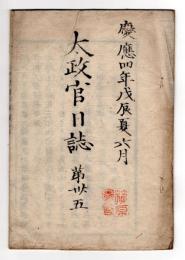 慶應四年戊辰夏六月
太政官日誌
第卅五